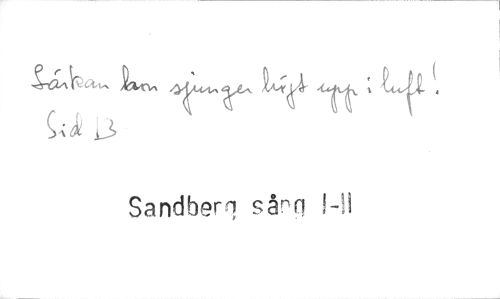 Lärkan hon sjunger högt upp i luft!
Sid 13
Sandberg sång I-II